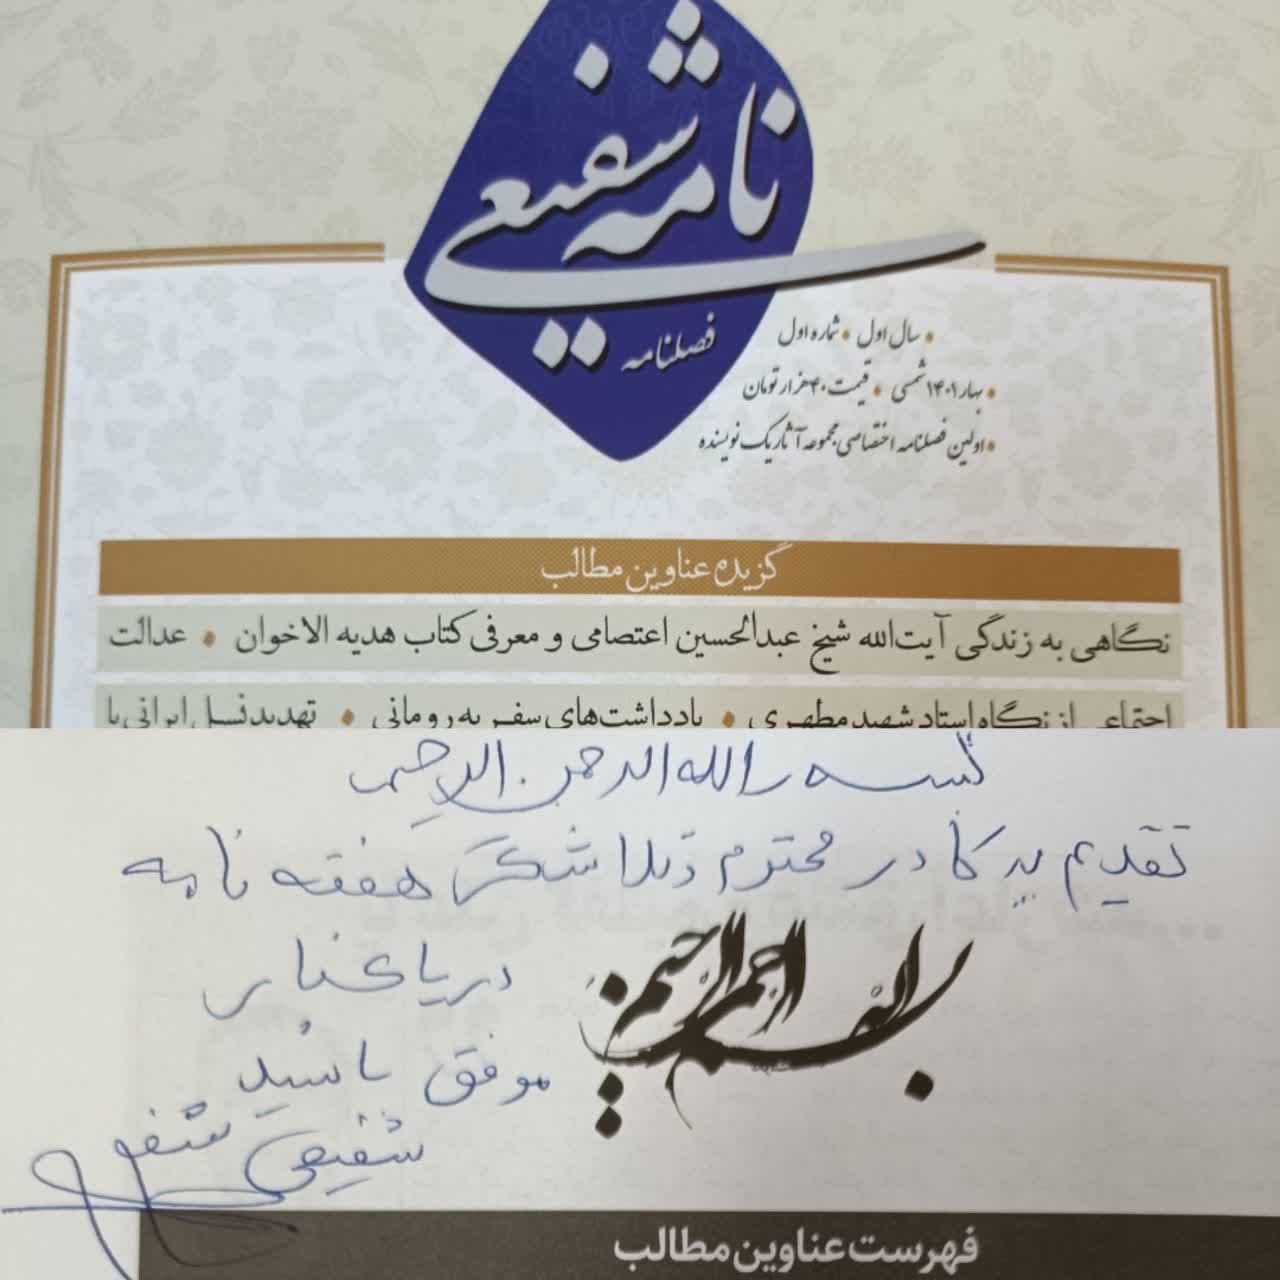 نامه شفیعی
فصلنامه
• سال اول • شماره اول
• بهار ۱۴۰۱ شمسی • قیمت ۴۰ هزار تومان
• اولین فصلنامه اختصاصی مجموعه آثار یک نویسنده
گزیده عناوین مطالب
نگاهی به زندگی آیت‌الله شیخ عبدالحسین اعتصامی و معرفی کتاب هدیه الاخوان • عدالت
اجتماعی از نگاه استاد شهید مطهری • یادداشت‌های سفر به رومانی • تهدید نسل ایرانی با
بسم الله الرحمن الرحیم
تقدیم به کادر محترم و تلاشگر هفته نامه
دریاکنار
موفق باشید
شفیعی
بسم الله الرحمن الرحیم
فهرست عناوین مطالب